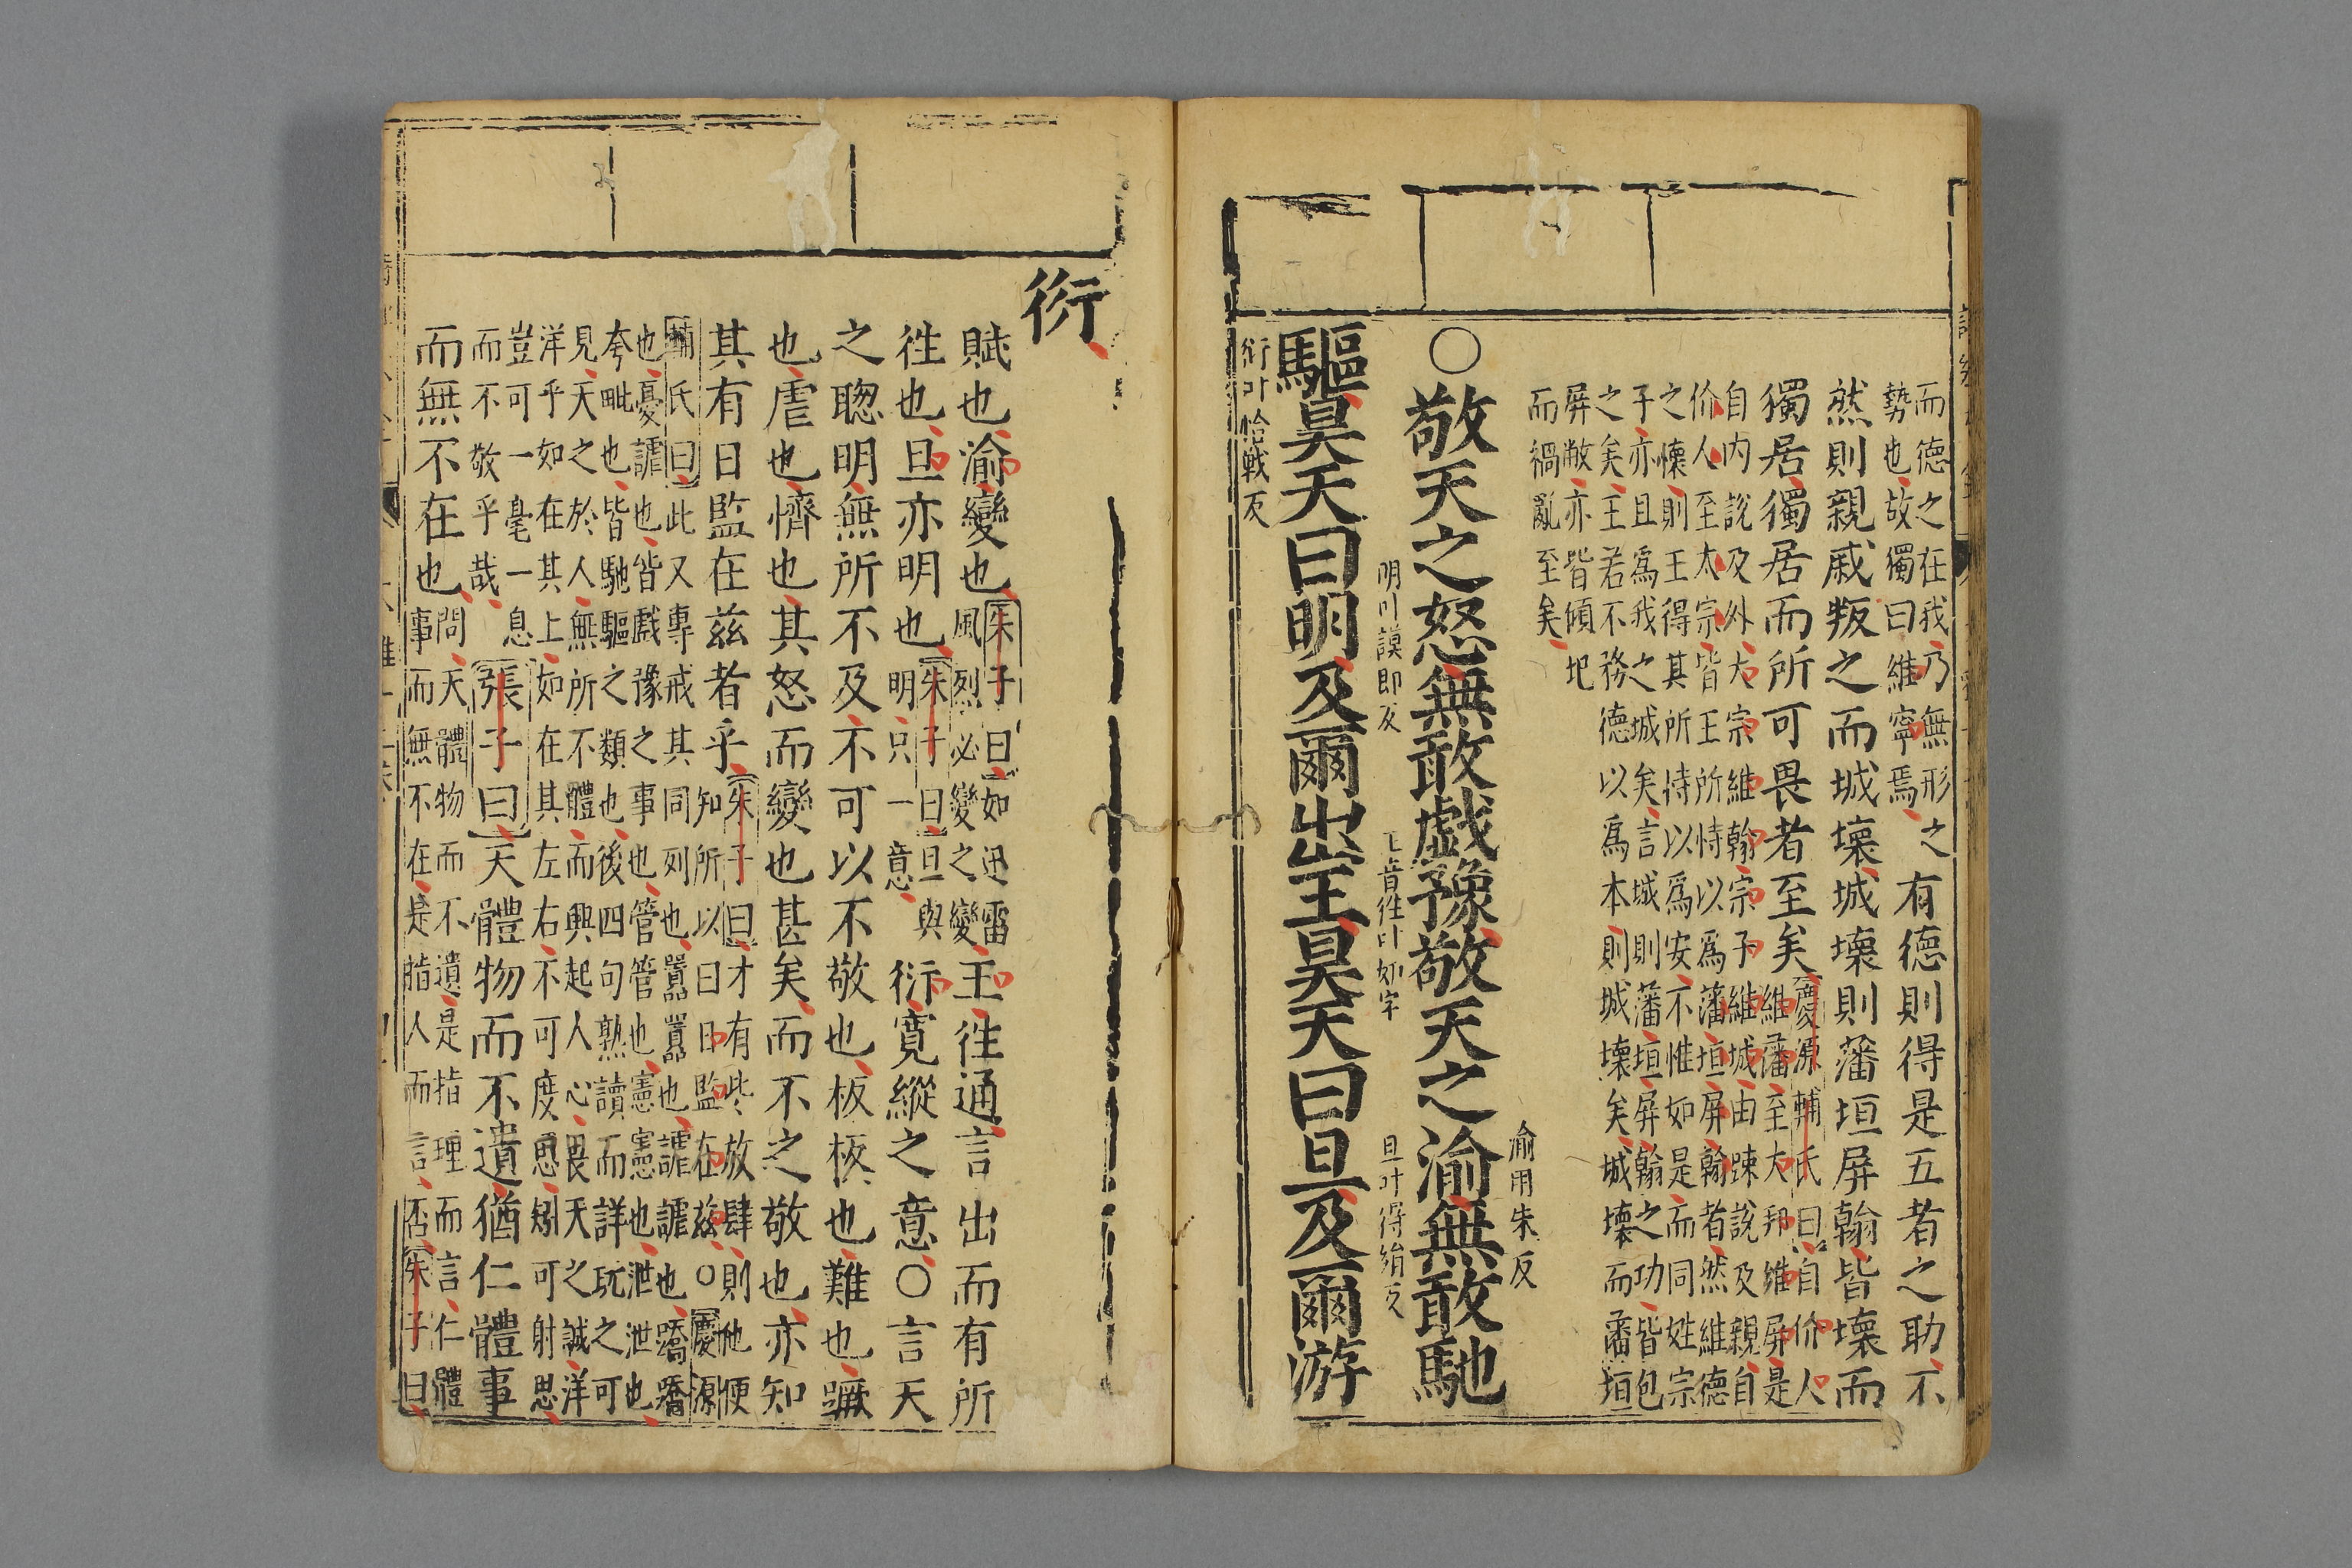 而德之在我乃無形之
勢也故獨曰維寧焉
有德則得是五者之助不
然則親戚叛之而城壞城壞則藩垣屏翰皆壞而
獨居獨居而所可畏者至矣
慶源輔氏曰自价人
維藩至大邦維屏是
自内説及外大宗維翰宗子維城由踈説及親自
价人至太宗皆王所恃以爲藩垣屏翰者然維德
之懷則王得其所恃以爲安不惟如是而同姓宗
子亦且爲我之城矣言城則藩垣屏翰之功皆包
之矣王若不務德以爲本則城壞矣城壞而藩垣
屏敝亦皆傾圯
而禍亂至矣
○敬天之怒無敢戲豫敬天之渝無敢馳
渝用朱反
驅昊天曰明及爾出王昊天曰旦及爾游
明叶謨郎反
王音往叶如字
旦叶得絹反
衍叶怡戰反
衍
賦也渝變也
朱子曰如迅雷
風烈必變之變
王往通言出而有所
往也旦亦明也
朱子曰旦與
明只一意
衍寬縱之意○言天
之聰明無所不及不可以不敬也板板也難也蹶
也虐也懠也其怒而變也甚矣而不之敬也亦知
其有日監在兹者乎
朱子曰才有些放肆則他便
知所以曰日監在兹○慶源
輔氏曰此又專戒其同列也囂囂也謔謔也蹻蹻
也憂謔也皆戲豫之事也管管也憲憲也泄泄也
夸毗也皆馳驅之類也後四句熟讀而詳玩之可
見天之於人無所不體而興起人心畏天之誠洋
洋乎如在其上如在其左右不可度思矧可射思
豈可一毫一息
而不敬乎哉
張子曰天體物而不遺猶仁體事
而無不在也
問天體物而不遺是指理而言仁體
事而無不在是指人而言否朱子曰